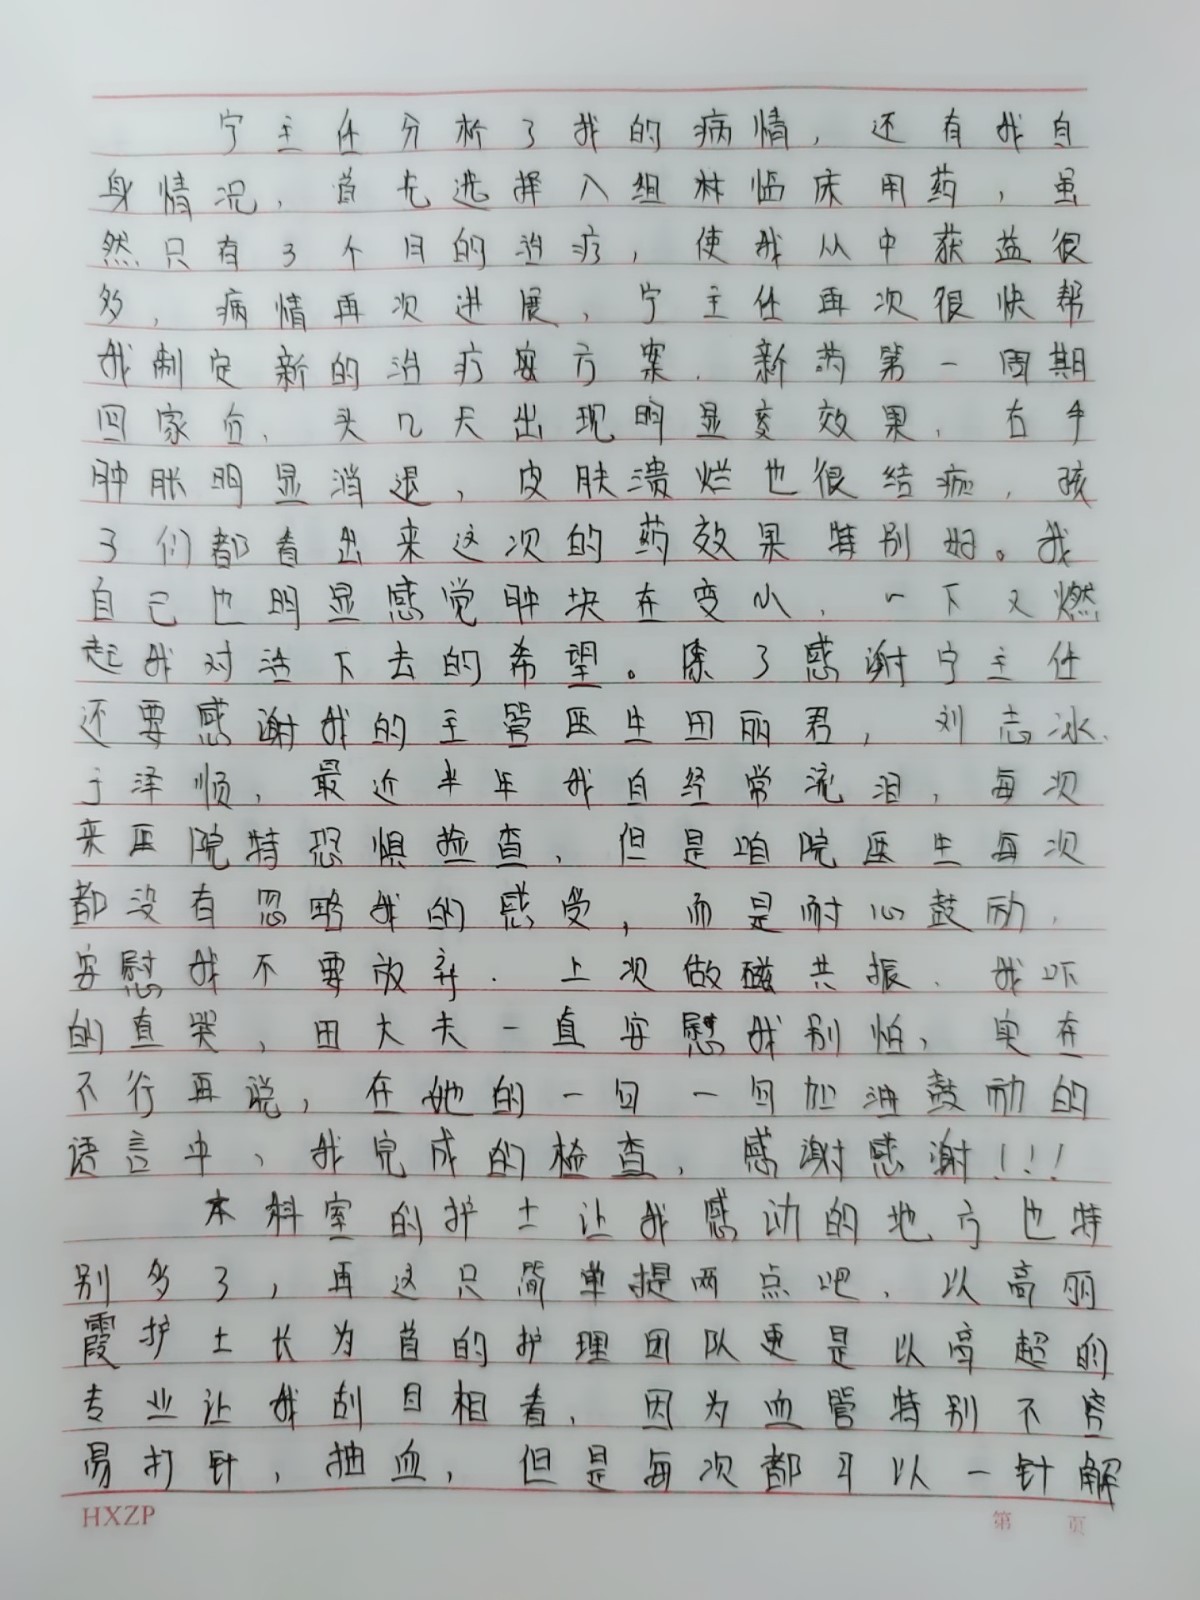 宁主任分析了我的病情，还有我自
身情况，首先选择入组林临床用药，虽
然只有3个月的治疗，使我从中获益很
多，病情再次进展，宁主任再次很快帮
我制定新的治疗案方案．新药第一周期
回家后，头几天出现明显变效果，右手
肿胀明显消退，皮肤溃烂也很结痂，孩
子们都看出来这次的药效果特别好。我
自己也明显感觉肿块在变小，一下又燃
起我对活下去的希望。除了感谢宁主任
还要感谢我的主管医生田丽君，刘志冰、
于泽顺，最近半年我自经常流泪，每次
来医院特恐惧检查，但是咱院医生每次
都没有忽略我的感受，而是耐心鼓励，
安慰我不要放弃．上次做磁共振，我吓
的直哭，田大夫一直安慰我别怕，实在
不行再说，在她的一句一句加油鼓励的
语言中，我完成的检查，感谢感谢！！！
本科室的护士让我感动的地方也特
别多了，再这只简单提两点吧，以高丽
霞护士长为首的护理团队更是以高超的
专业让我刮目相看，因为血管特别不容
易打针，抽血，但是每次都可以一针解
HXZP
第 页